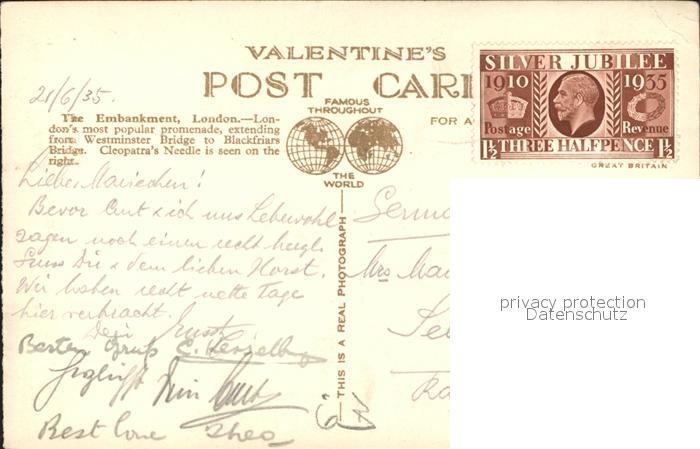 VALENTINE'S
POST CAR
FAMOUS
THROUGHOUT
THE
WORLD
FOR A
21/6/35.
The Embankment, London.—Lon-
don's most popular promenade, extending
from Westminster Bridge to Blackfriars
Bridge. Cleopatra's Needle is seen on the
right.
SILVER JUBILEE
1910 1935
Postage Revenue
1½ THREE HALFPENCE 1½
GREAT BRITAIN
THIS IS A REAL PHOTOGRAPH
Liebes Mariechen!
Bevor Curt & ich uns Lebewohl
sagen noch einen recht herzl.
Gruss Dir & dem lieben Horst.
Wir haben recht nette Tage
hier verbracht.
Dein Ernst
Besten Gruß
Best love Theo
Mrs
privacy protection
Datenschutz